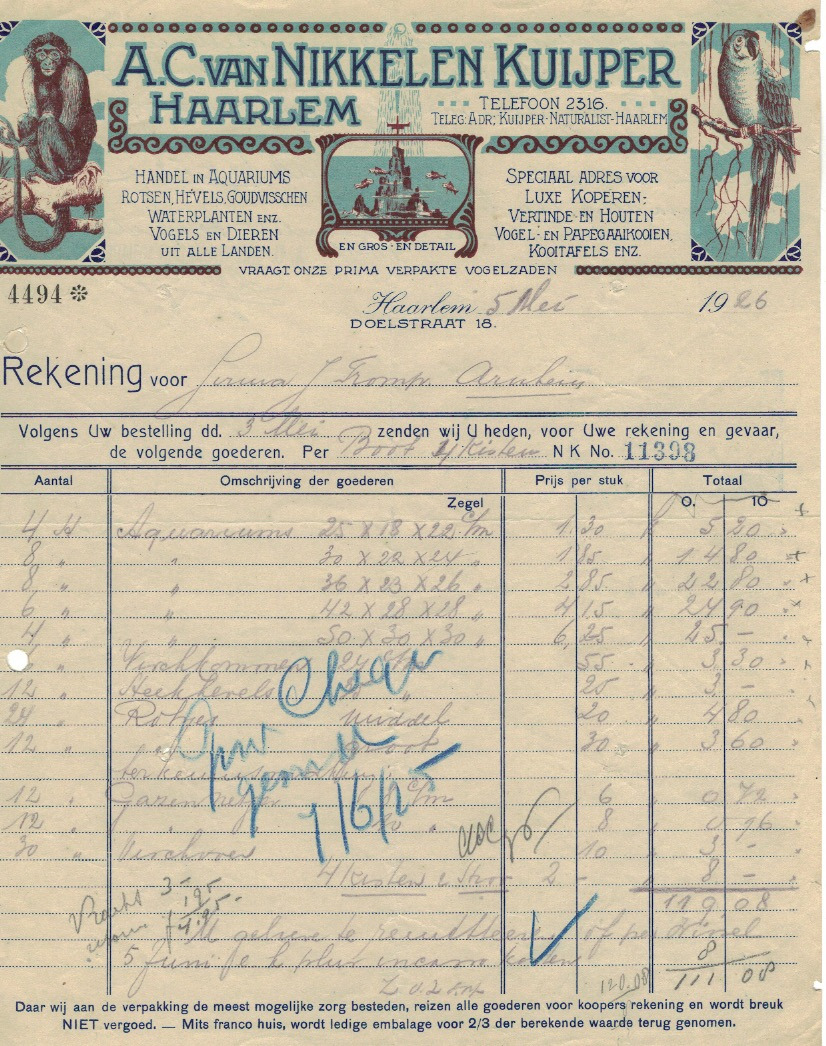 A.C. VAN NIKKELEN KUIJPER
HAARLEM
TELEFOON 2316.
TELEG: ADR; KUIJPER-NATURALIST-HAARLEM
HANDEL IN AQUARIUMS
ROTSEN, HÉVELS, GOUDVISSCHEN
WATERPLANTEN ENZ.
VOGELS EN DIEREN
UIT ALLE LANDEN.
EN GROS - EN DETAIL
SPECIAAL ADRES VOOR
LUXE KOPEREN;
VERTINDE EN HOUTEN
VOGEL- EN PAPEGAAIKOOIEN,
KOOITAFELS ENZ.
VRAAGT ONZE PRIMA VERPAKTE VOGELZADEN
4494 *
Haarlem 5 Mei 1926
DOELSTRAAT 18.
Rekening voor Firma J Tromp. Arnhem
Volgens Uw bestelling dd. 3 Mei zenden wij U heden, voor Uwe rekening en gevaar,
de volgende goederen. Per Boot 4 Kisten N K No. 11398
Aantal Omschrijving der goederen Prijs per stuk Totaal
Zegel 0. 10
4 Aquariums 25 X 18 X 22 c/m 1 30 5 20
8 " " 30 X 22 X 24 " 1 85 14 80
8 " " 36 X 23 X 26 " 2 85 22 80
6 " " 42 X 28 X 28 " 4 15 24 90
4 " " 50 X 30 X 30 " 6,25 25 -
55 3 30
12 " 25 3 -
24 " Rotsen middel 20 4 80
12 " groot 30 3 60
12 " 6 0 72
12 " 8 0 96
30 " 10 3 -
4 Kisten & Stroo 2 - 8 -
Per Cheque
gezonden
7/6/25
Vracht 3-
1,95
4.95-
119 08
of per
8
5 Juni plus incasso kosten
111 08
120.08
Daar wij aan de verpakking de meest mogelijke zorg besteden, reizen alle goederen voor koopers rekening en wordt breuk
NIET vergoed. — Mits franco huis, wordt ledige embalage voor 2/3 der berekende waarde terug genomen.